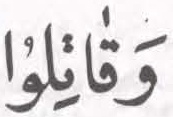 وَقَاتِلُوا